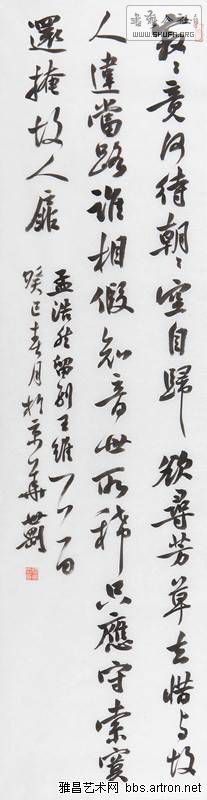 www.shufa.org
寂〻竟何待朝〻空自歸欲尋芳草去惜与故
人違當路誰相假知音世所稀只應守索寞
還掩故人扉
孟浩然留别王維
癸巳春月於京華
雅昌艺术网 bbs.artron.net